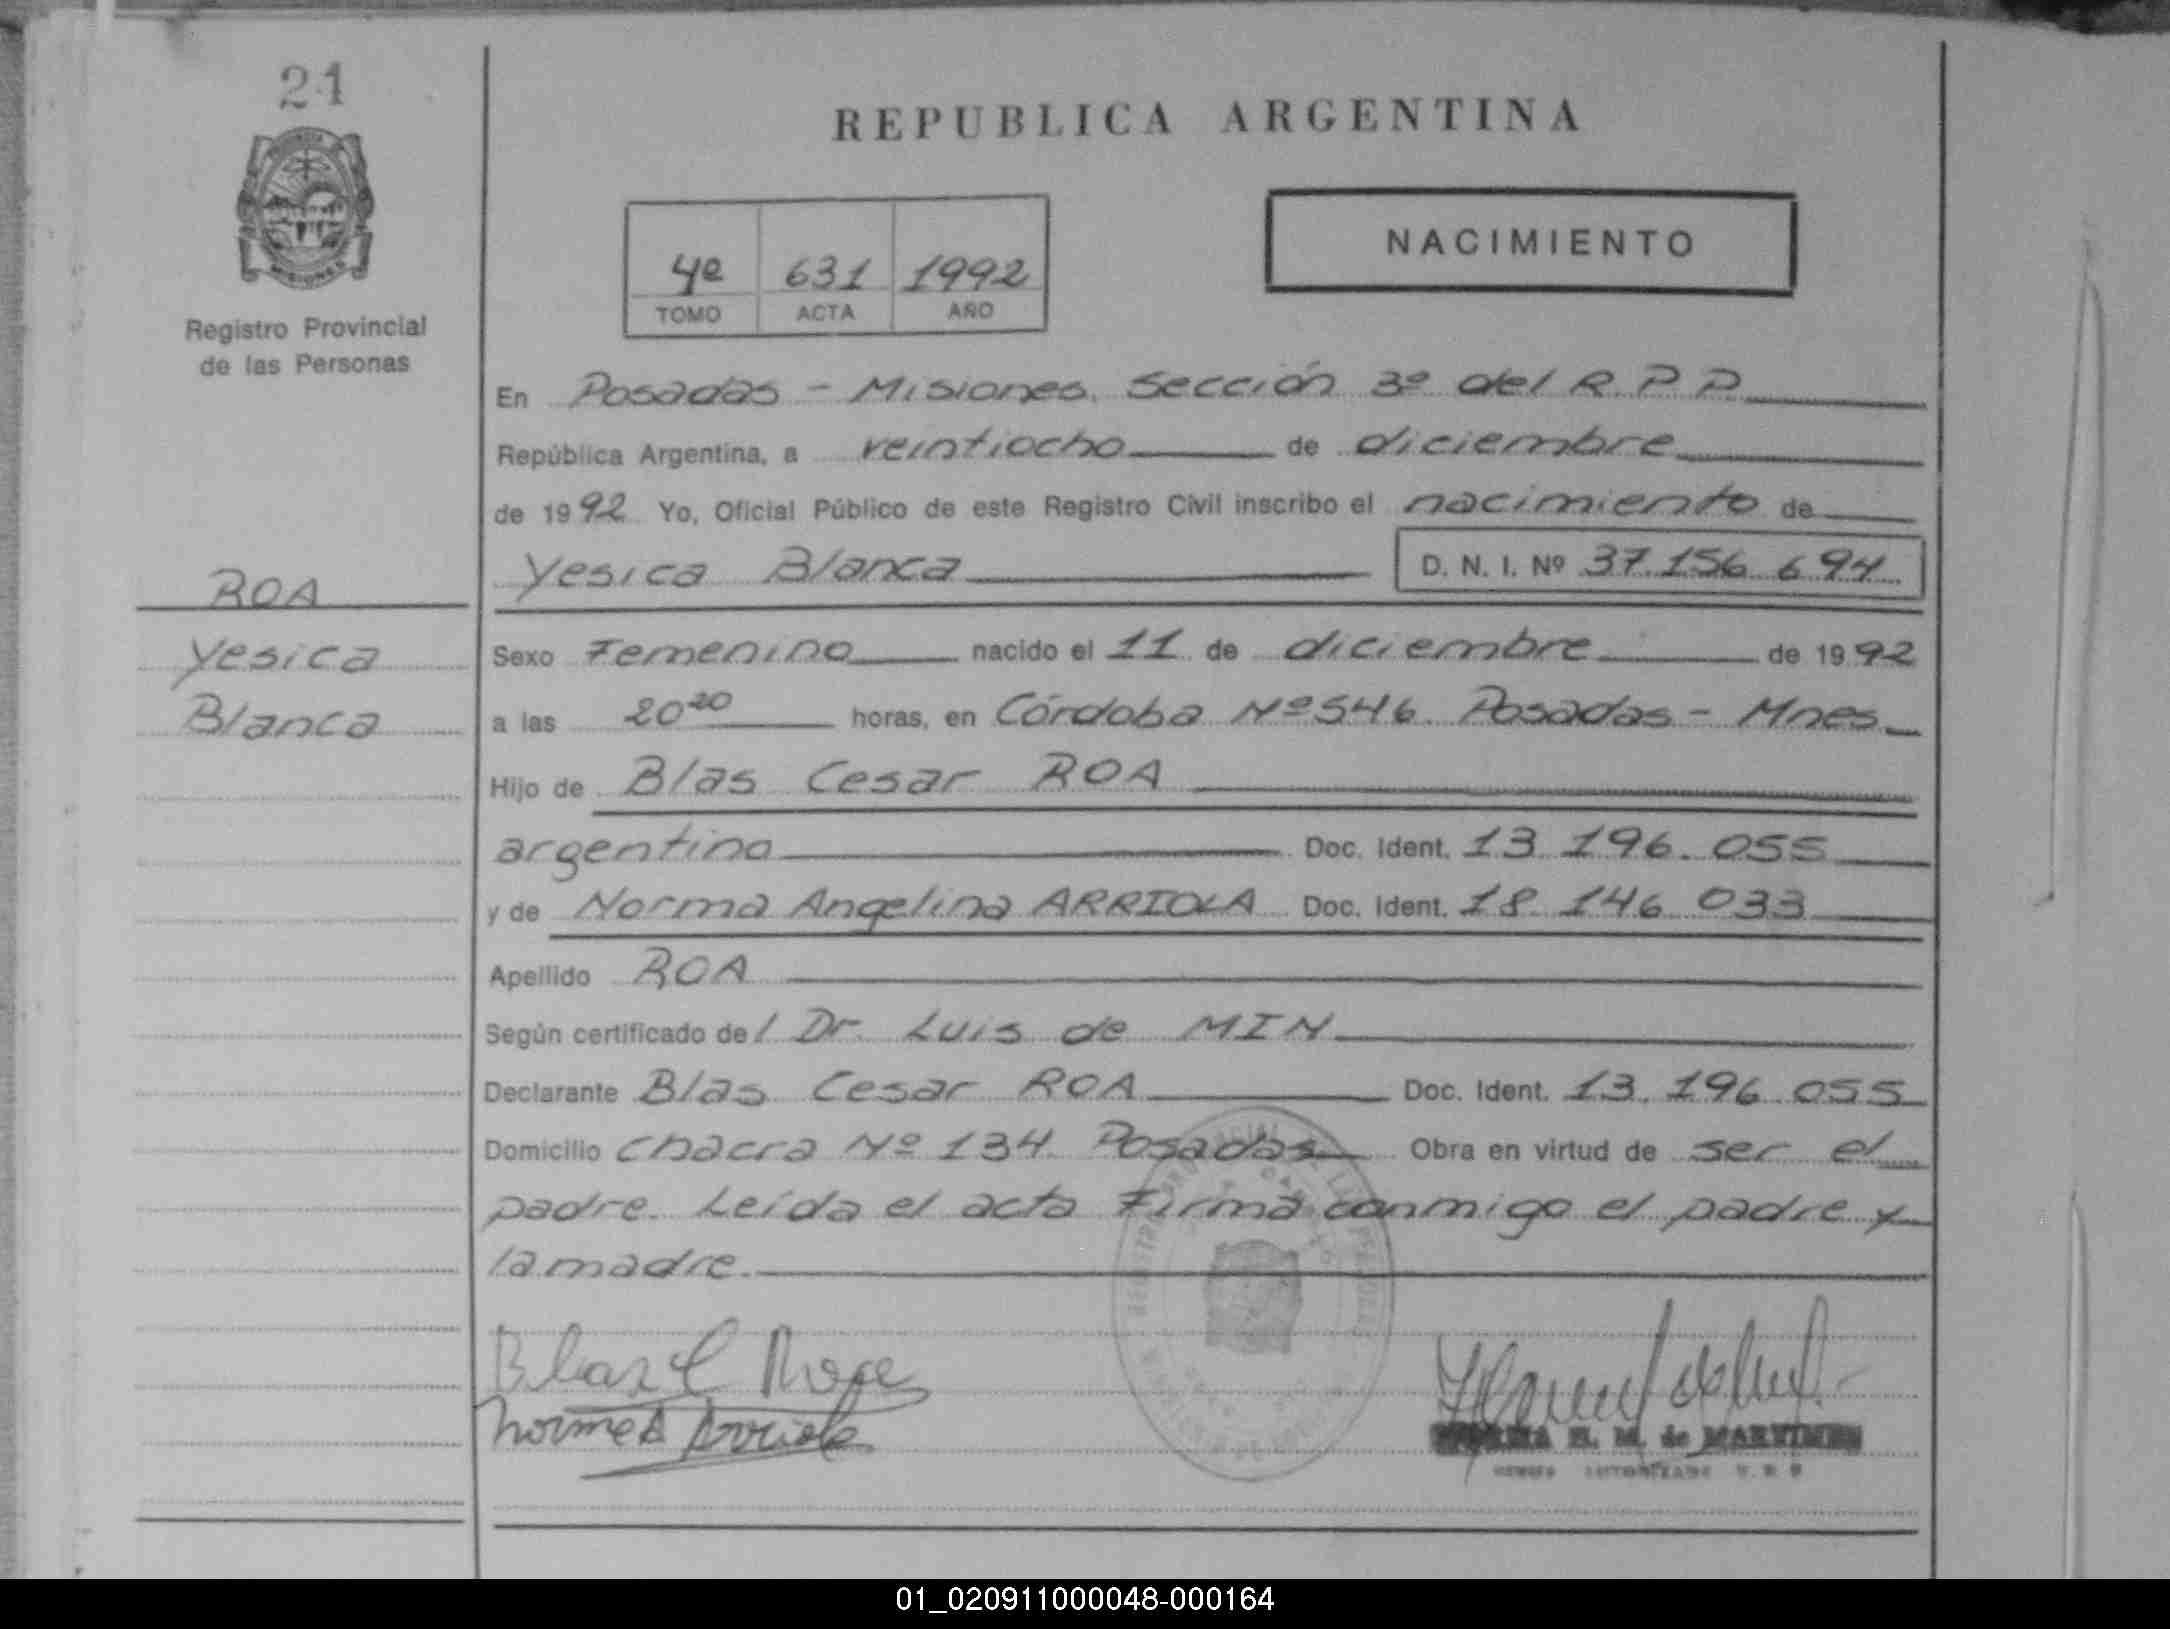 21
Registro Provincial
de las Personas
ROA
Yesica
Blanca
REPUBLICA ARGENTINA
4º 631 1992
TOMO ACTA AÑO
NACIMIENTO
En Posadas - Misiones. Sección 3º del R.P.P.
República Argentina, a veintiocho de diciembre
de 1992 Yo, Oficial Público de este Registro Civil inscribo el nacimiento de
Yesica Blanca D. N. I. Nº 37.156.694
Sexo Femenino nacido el 11 de diciembre de 1992
a las 20²⁰ horas, en Córdoba Nº 546. Posadas - Mnes
Hijo de Blas Cesar ROA
argentino Doc. Ident. 13.196.055
y de Norma Angelina ARRIOLA Doc. Ident. 18.146.033
Apellido ROA
Según certificado del Dr. Luis de MIN
Declarante Blas Cesar ROA Doc. Ident. 13.196.055
Domicilio Chacra Nº 134. Posadas Obra en virtud de ser el
padre. Leída el acta Firma conmigo el padre y
la madre.
Blas C Roa
Norma A Arriola
H. M. de MARTINEZ
01_020911000048-000164